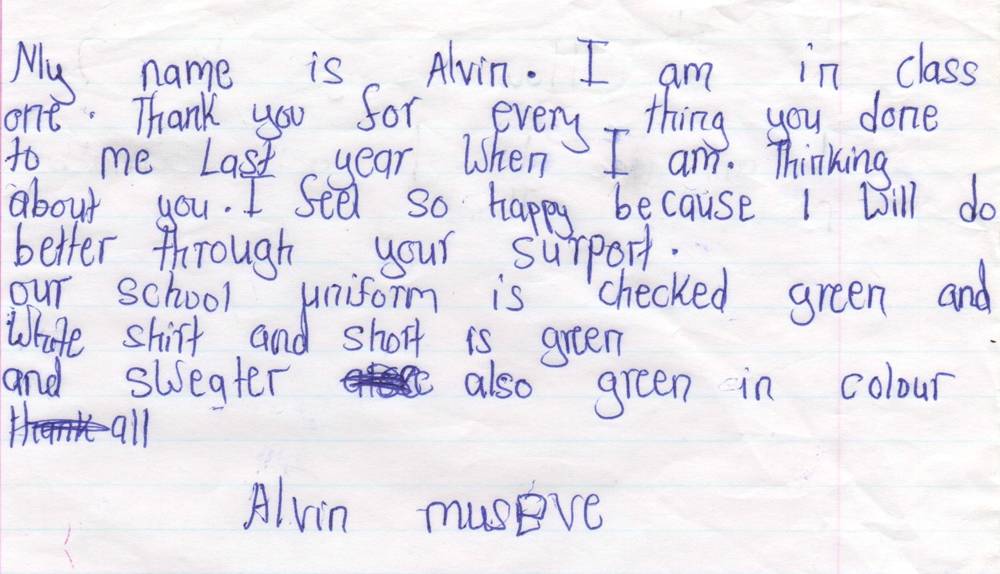 My name is Alvin. I am in class
one. Thank you for every thing you done
to me Last year When I am. Thinking
about you. I feel so happy because I Will do
better through your surport.
our school uniform is checked green and
White shirt and short is green
and sweater also green in colour
thank all
Alvin